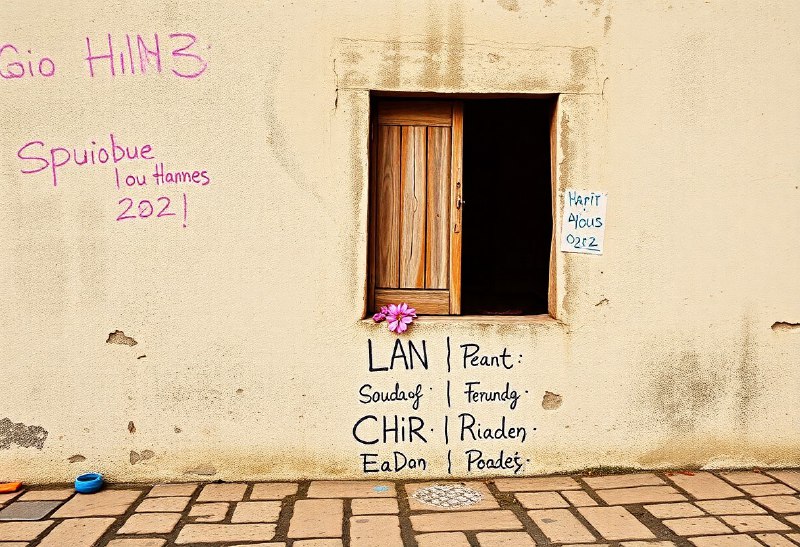 Gio HIIN3
Spuiobue
lou Hannes
202!
Harir
Ayous
0262
LAN | Peant:
Soudaof. | Ferundg.
CHiR. | Riaden.
EaDan | Poadeş.